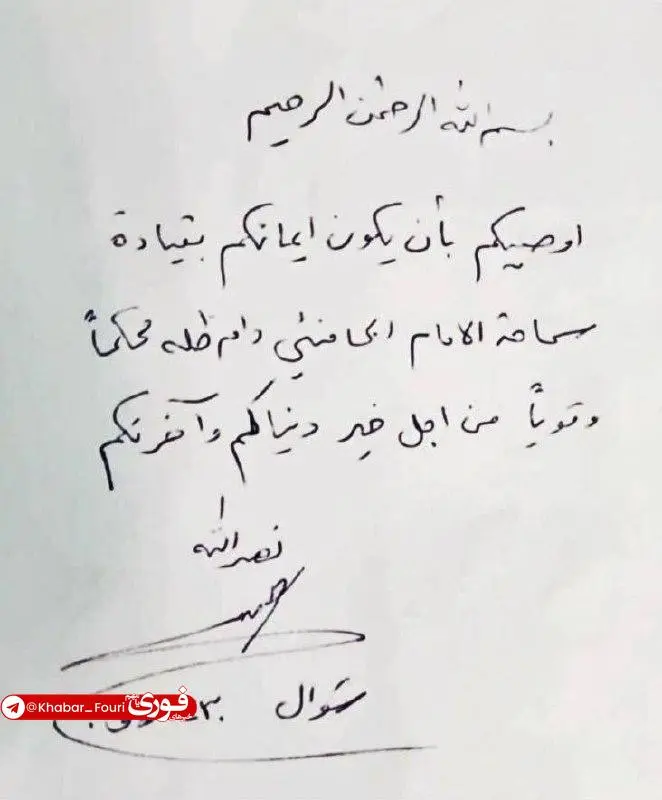 بسم الله الرحمن الرحيم
اوصيكم بأن يكون ايمانكم بقيادة
سماحة الامام الخامنئي دام ظله محكماً
وقوياً من اجل خير دنياكم وآخرتكم
نصر الله
شوال
@Khabar_Fouri
فوری
خبرهای
مهم